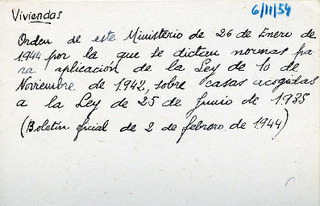 Viviendas
6/11/54
Orden de este Ministerio de 26 de Enero de
1944 por la que se dictan normas pa
ra aplicación de la Ley de 10 de
Noviembre de 1942, sobre casas acogidas
a la Ley de 25 de Junio de 1935
(Boletin oficial de 2 de febrero de 1944)